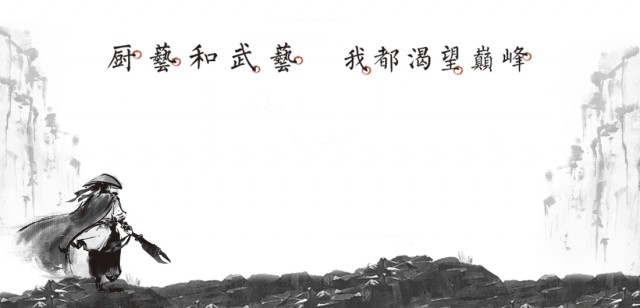 厨藝和武藝 我都渴望巔峰